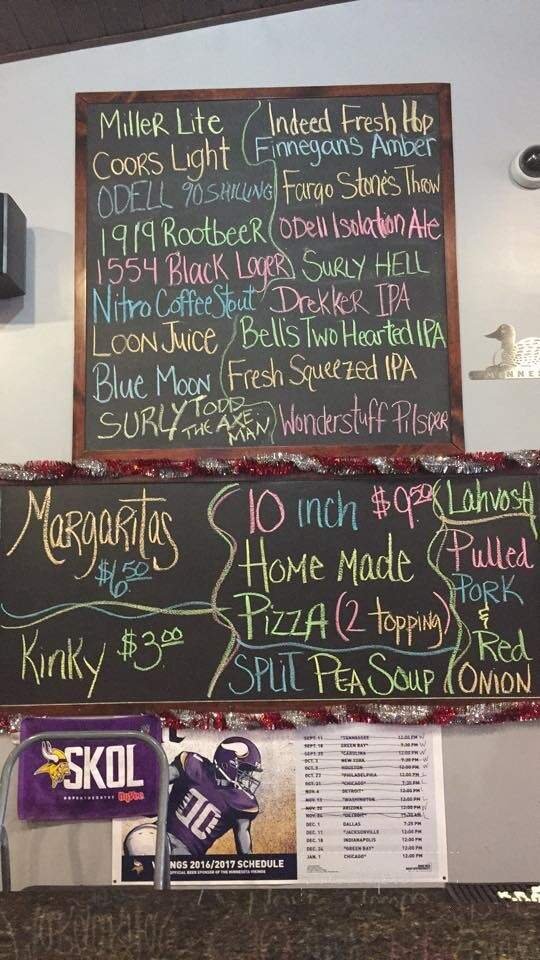 Miller Lite
Coors Light
ODELL 90 SHILLING
1919 Rootbeer
1554 Black Lager
Nitro Coffee Stout
Loon Juice
Blue Moon
SURLY TODD
THE AXE
MAN
Indeed Fresh Hop
Finnegans Amber
Fargo Stone's Throw
Odell Isolation Ale
SURLY HELL
Drekker IPA
Bell's Two Hearted IPA
Fresh Squeezed IPA
Wonderstuff Pilsner
Margaritas
$6.50
Kinky $3.00
10 inch $9.50
Home Made
Pizza (2 topping)
SPLIT PEA SOUP
Lahvosh
Pulled
PORK
&
Red
ONION
SKOL
30
NGS 2016/2017 SCHEDULE
OFFICIAL BEER SPONSOR OF THE MINNESOTA VIKINGS
SEPT. 11 TENNESSEE 12:00 PM
SEPT. 18 GREEN BAY*
CAROLINA 12:00 PM
OCT. 3 NEW YORK
HOUSTON 12:00 PM
OCT. 23 *PHILADELPHIA 12:00 PM
CHICAGO*
NOV. 6 DETROIT* 12:00 PM
NOV. 13 *WASHINGTON 12:00 PM
ARIZONA 12:00 PM
*DETROIT*
DEC. 1 DALLAS 7:25 PM
DEC. 11 *JACKSONVILLE 12:00 PM
DEC. 18 INDIANAPOLIS 12:00 PM
DEC. 24 *GREEN BAY* 12:00 PM
JAN. 1 CHICAGO* 12:00 PM